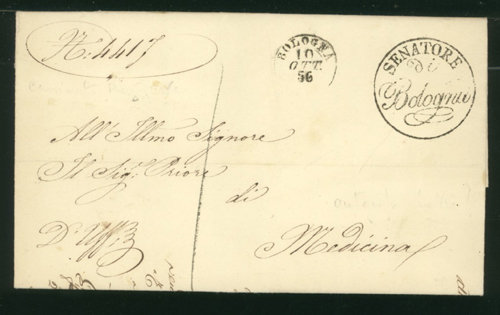 N: 4417
BOLOGNA
10
OTT.
56
SENATORE
di
Bologna
All' Illmo Signore
Il Sig.r Priore
di
D'Uff.º
Medicina